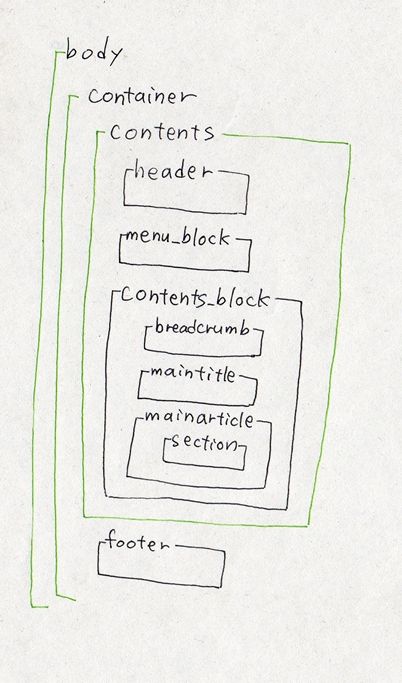 body
container
contents
header
menu_block
contents_block
breadcrumb
maintitle
mainarticle
section
footer